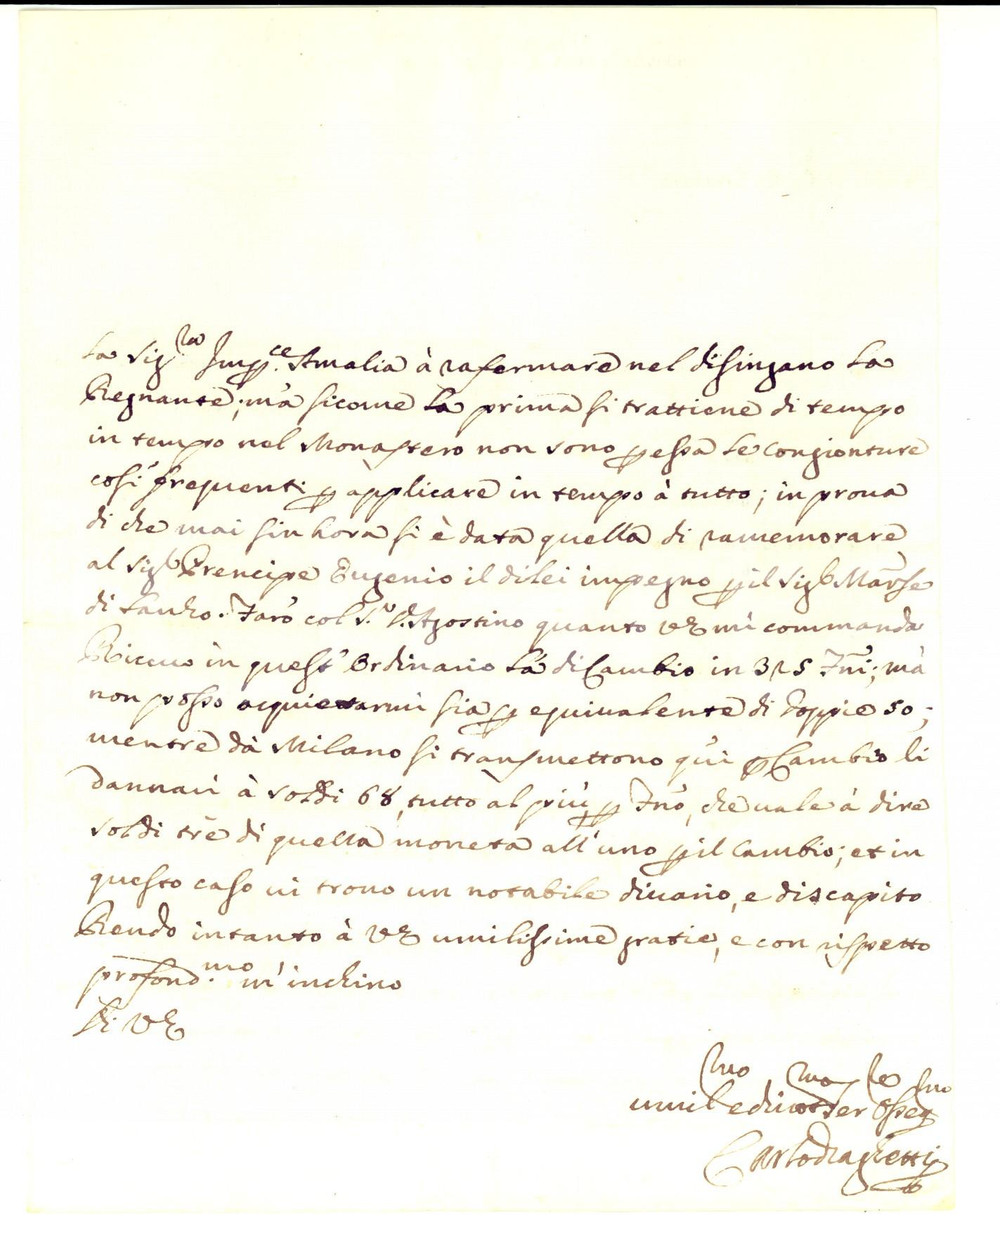 La Sig.ra Imp.ce Amalia à rafermare nel disingano la
Regnante; mà sicome la prima si trattiene di tempo
in tempo nel Monastero non sono p essa le congionture
così frequenti p applicare in tempo à tutto; in prova
di che mai sin hora si è data quella di ramemorare
al Sig.r Prencipe Eugenio il dilei impegno p il Sig.r Marse
di Farò col S.r Agostino quanto VE mi commanda
Ricevo in quest' Ordinario la di Cambio in 325 fni; mà
non posso acquietarmi sia p equivalente di doppie 50;
mentre dà Milano si transmettono quì p Cambio li
dannari à soldi 68, tutto al più p fno, che vale à dire
soldi trè di quella moneta all' uno p il Cambio; et in
questo caso vi trovo un notabile divario, e discapito
Rendo intanto à VE umilissime gratie, e con rispetto
profond.mo m'inchino
Di VE
umil.mo e div.mo ser.re osseq.mo
Carlo